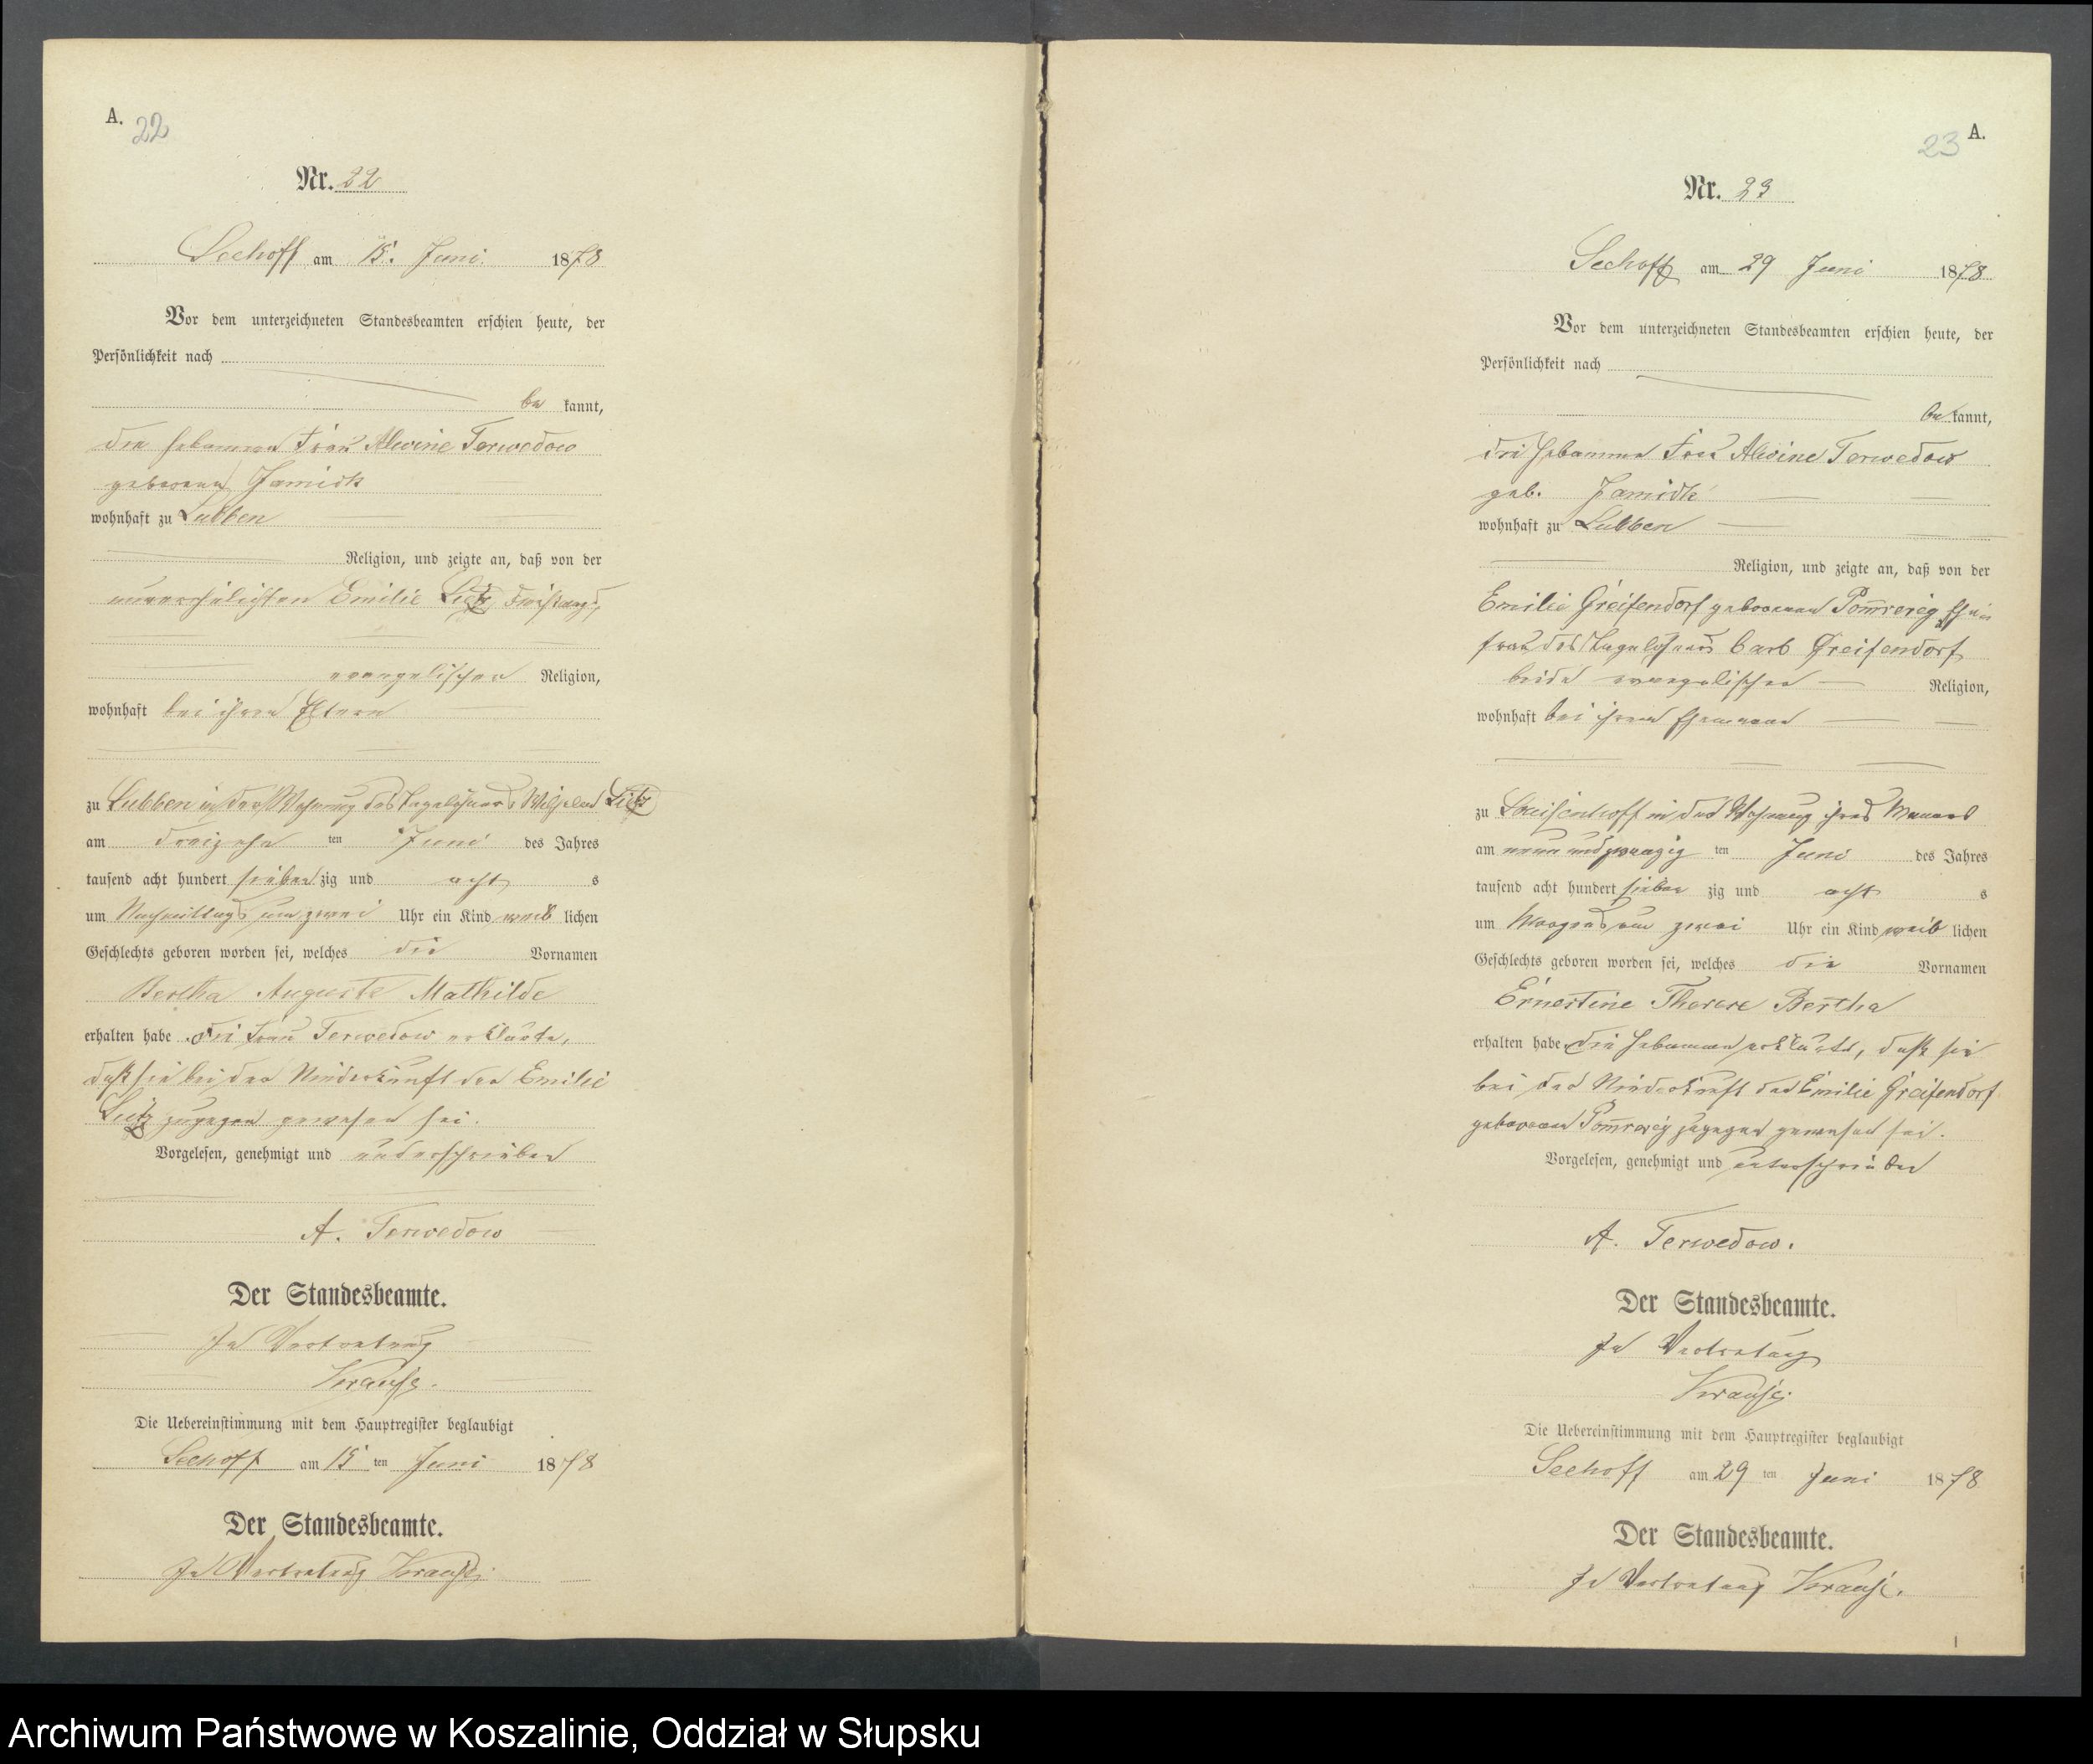 A. 22
Nr. 22
Seehoff am 15. Juni 1878
Vor dem unterzeichneten Standesbeamten erschien heute, der
Persönlichkeit nach
be kannt,
die Hebamme Frau Alwine Terwedow
geborene Jamick
wohnhaft zu Lubben
Religion, und zeigte an, daß von der
unverehelichten Emilie Lietz
evangelischer Religion,
wohnhaft bei ihren Eltern
zu Lubben in der Wohnung des Tagelöhners Wilhelm Lietz
am dreizehn ten Juni des Jahres
tausend acht hundert sieben zig und acht s
um Nachmittags um zwei Uhr ein Kind weib lichen
Geschlechts geboren worden sei, welches die Vornamen
Bertha Auguste Mathilde
erhalten habe. Die Frau Terwedow erklärte,
daß sie bei der Niederkunft der Emilie
Lietz zugegen gewesen sei.
Vorgelesen, genehmigt und unterschrieben
A. Terwedow
Der Standesbeamte.
In Vertretung
Krause.
Die Uebereinstimmung mit dem Hauptregister beglaubigt
Seehoff am 15 ten Juni 1878
Der Standesbeamte.
In Vertretung Krause.
23 A.
Nr. 23
Seehoff am 29 Juni 1878
Vor dem unterzeichneten Standesbeamten erschien heute, der
Persönlichkeit nach
be kannt,
die Hebamme Frau Alwine Terwedow
geb. Jamick
wohnhaft zu Lubben
Religion, und zeigte an, daß von der
Emilie Greifendorf geborenen Pom̅rerig Ehe
frau des Tagelöhners Carl Greifendorf
beide evangelischer Religion,
wohnhaft bei ihrem Ehemann
zu Louisenhoff in der Wohnung ihres Mannes
am neun und zwanzig ten Juni des Jahres
tausend acht hundert sieben zig und acht s
um Morgens um zwei Uhr ein Kind weib lichen
Geschlechts geboren worden sei, welches die Vornamen
Ernestine Therese Bertha
erhalten habe. Die Hebamme erklärte, daß sie
bei der Niederkunft der Emilie Greifendorf
geborenen Pom̅rerig zugegen gewesen sei.
Vorgelesen, genehmigt und unterschrieben
A. Terwedow.
Der Standesbeamte.
In Vertretung
Krause.
Die Uebereinstimmung mit dem Hauptregister beglaubigt
Seehoff am 29 ten Juni 1878
Der Standesbeamte.
In Vertretung Krause.
Archiwum Państwowe w Koszalinie, Oddział w Słupsku